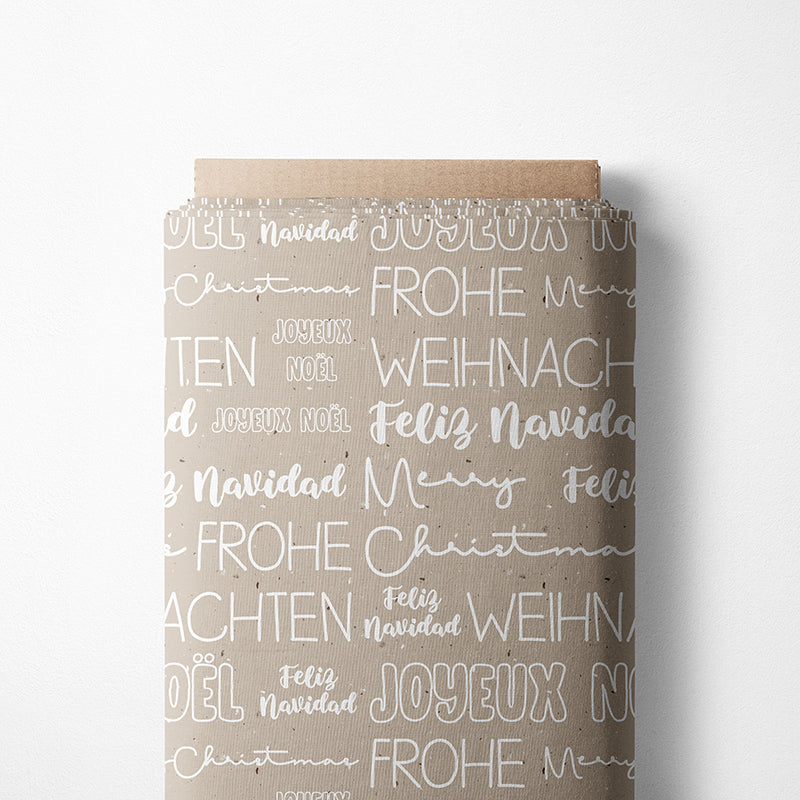 OËL Navidad JOYEUX NO
Christmas FROHE Merry
JOYEUX
NOËL
TEN WEIHNACH
d JOYEUX NOËL Feliz Navida
z Navidad Merry Feliz
s FROHE Christmas
ACHTEN Feliz
Navidad WEIHNA
OËL Feliz
Navidad JOYEUX NO
Christmas FROHE Merry
JOYEUX